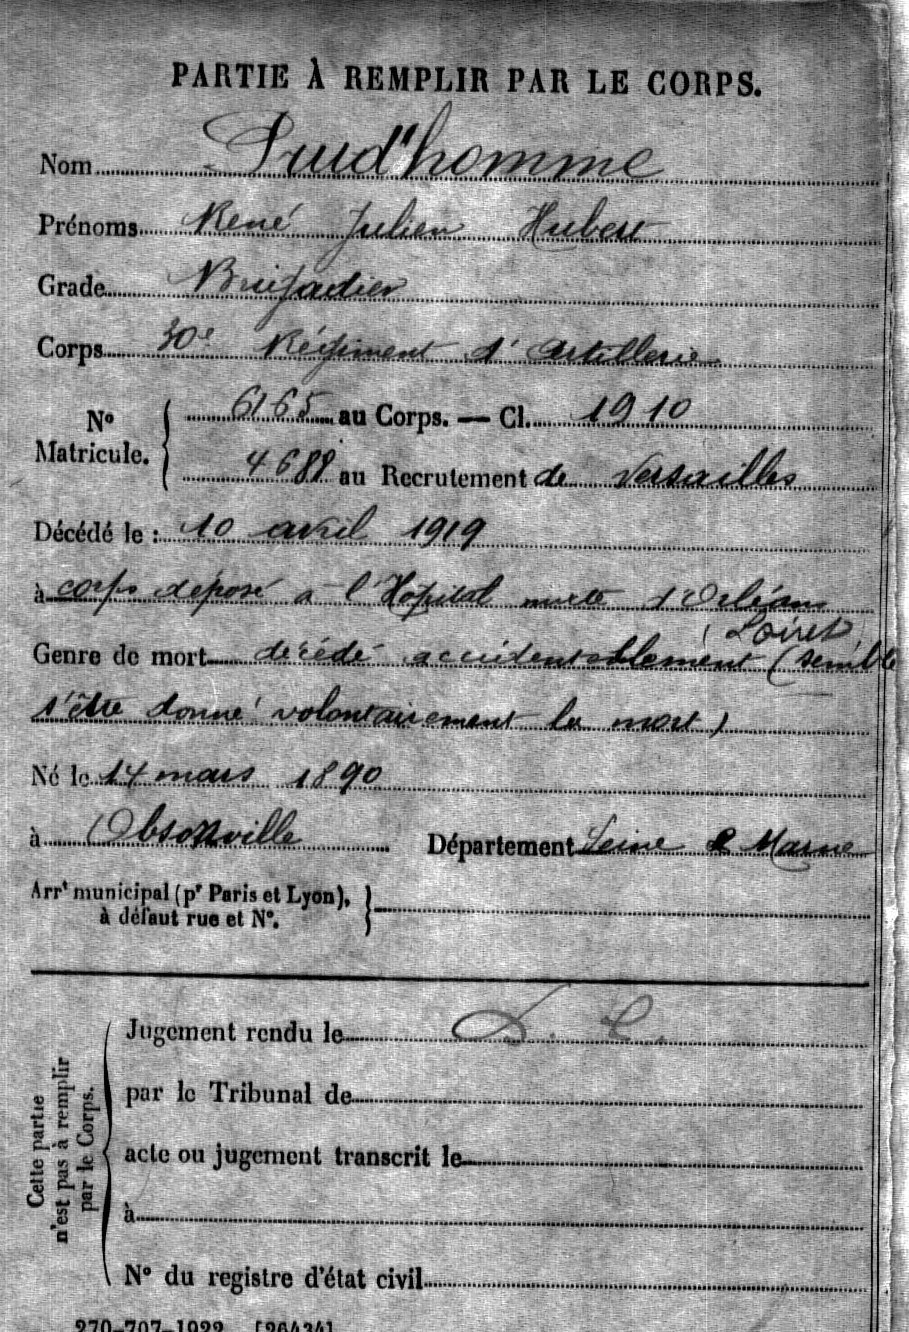 PARTIE À REMPLIR PAR LE CORPS.
Nom Prud'homme
Prénoms René Julien Hubert
Grade Brigadier
Corps 30e Régiment d'artillerie
No Matricule. 6165 au Corps. — Cl. 1910
4689 au Recrutement de Versailles
Décédé le : 10 avril 1919
à corps déposé à l'Hopital mixte d'Orléans
(Loiret)
Genre de mort décédé accidentellement (semble
s'être donné volontairement la mort)
Né le 14 mars 1890
à Obsonville Département Seine & Marne
Arrt municipal (pr Paris et Lyon),
à défaut rue et No.
Cette partie n'est pas à remplir par le Corps.
Jugement rendu le D. C.
par le Tribunal de
acte ou jugement transcrit le
à
No du registre d'état civil
270-707-1922. [26434]